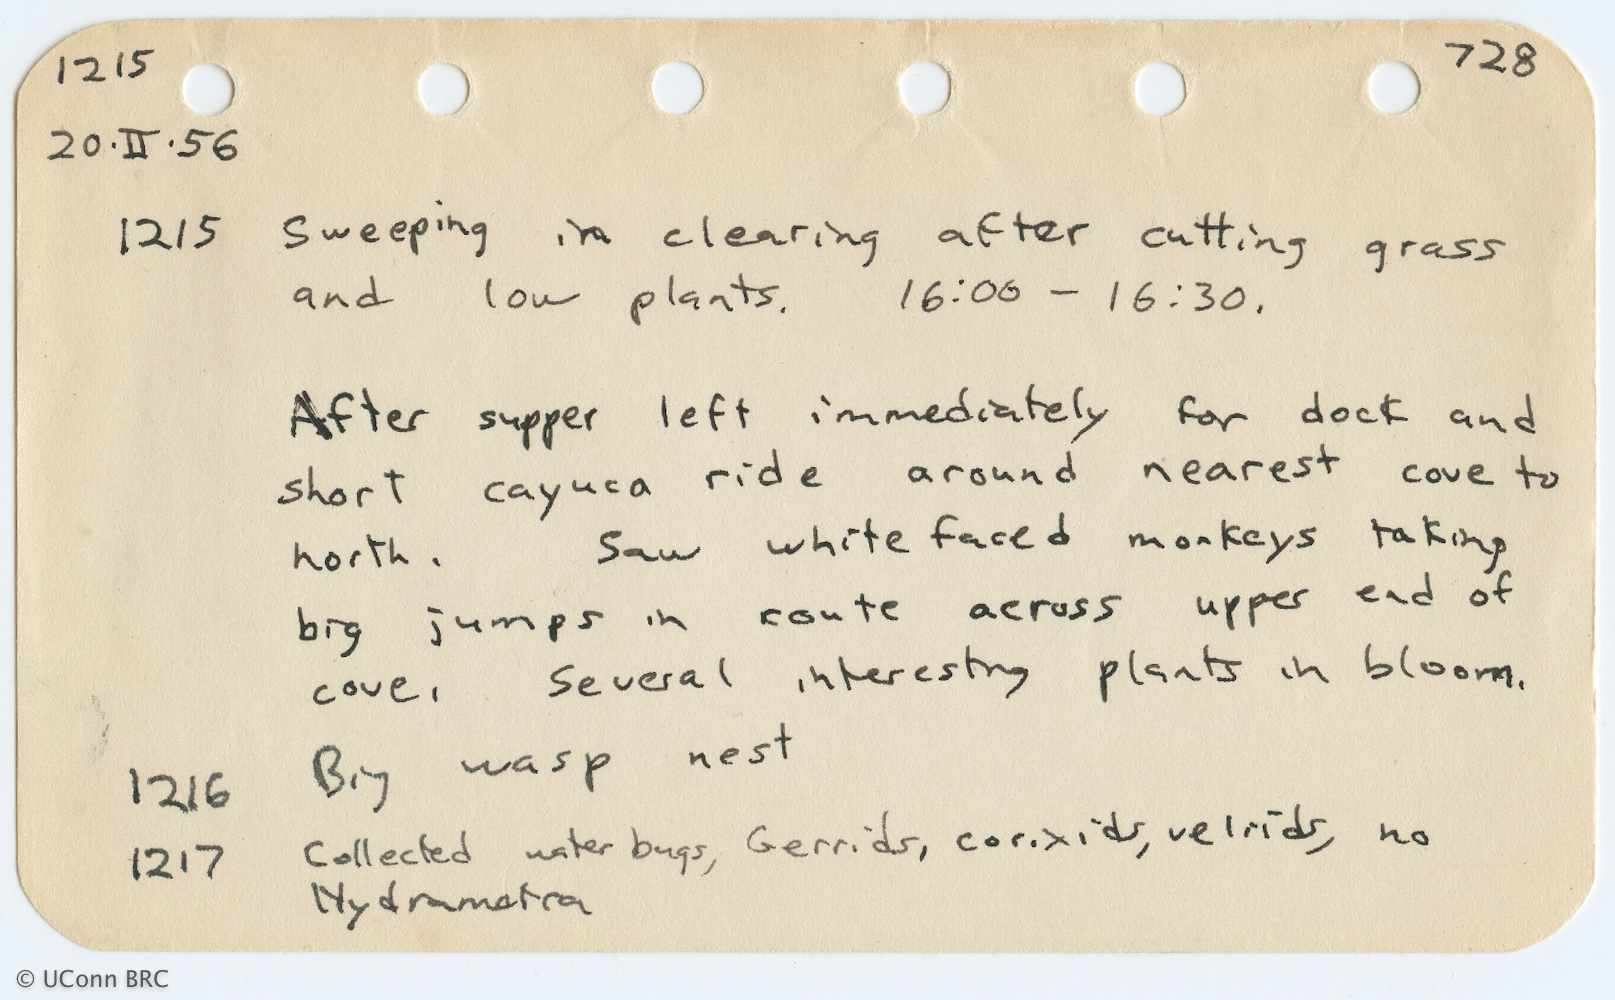 1215 728
20.II.56
1215 Sweeping in clearing after cutting grass
and low plants. 16:00 - 16:30.
After supper left immediately for dock and
short cayuca ride around nearest cove to
north. Saw white faced monkeys taking
big jumps in route across upper end of
cove. Several interesting plants in bloom.
1216 Big wasp nest
1217 Collected water bugs, Gerrids, corixids, veliids, no
Hydrametra
© UConn BRC